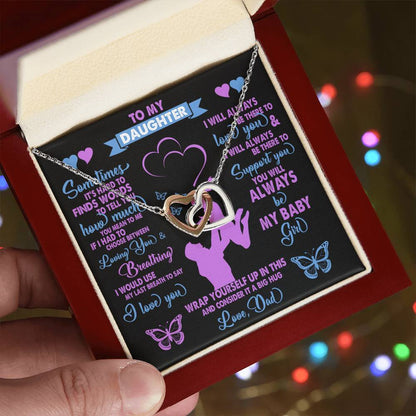 TO MY
DAUGHTER
Sometimes
IT'S HARD TO
FINDS WORDS
TO TELL YOU
how much
YOU MEAN TO ME
IF I HAD TO
CHOOSE BETWEEN
Loving You &
Breathing
I WOULD USE
MY LAST BREATH TO SAY
I love you
I WILL ALWAYS
BE THERE TO
love you &
I WILL ALWAYS
BE THERE TO
Support you
YOU WILL
ALWAYS
be
MY BABY
Girl
WRAP YOURSELF UP IN THIS
AND CONSIDER IT A BIG HUG
Love, Dad